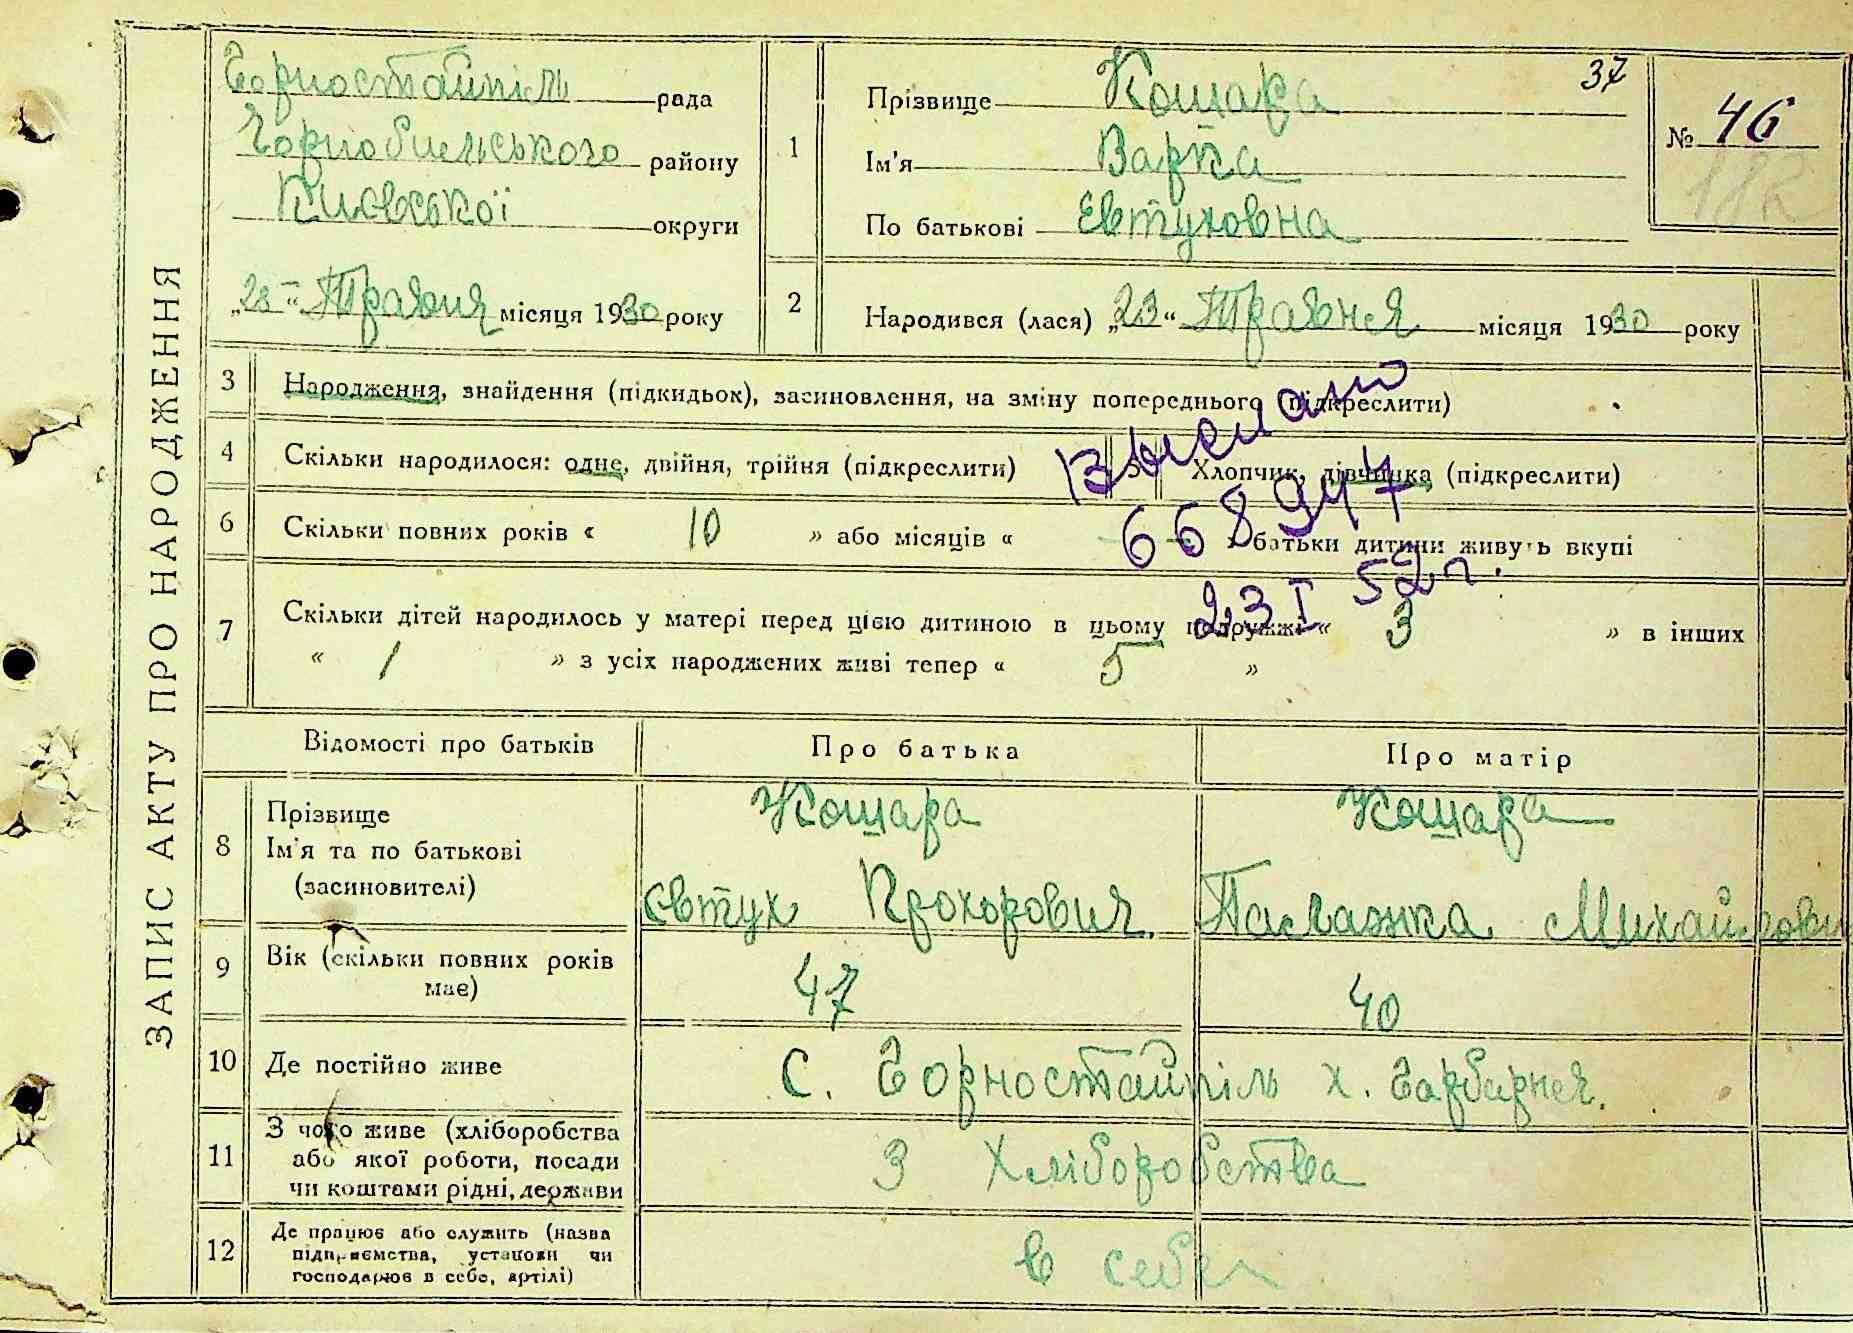 ЗАПИС АКТУ ПРО НАРОДЖЕННЯ
Горностайпіль рада
Чорнобильського району
Київської округи
„28“ Травня місяця 1930 року
37
№ 46
182
1 Прізвище Кошара
Ім'я Варка
По батькові Евтуховна
2 Народився (лася) „23“ Травня місяця 1930 року
3 Народження, знайдення (підкидьок), засиновлення, на зміну попереднього (підкреслити)
4 Скільки народилося: одне, двійня, трійня (підкреслити) 5 Хлопчик, дівчинка (підкреслити)
6 Скільки повних років « 10 » або місяців « — » батьки дитини живуть вкупі
668947
23 I 52 г.
7 Скільки дітей народилось у матері перед цією дитиною в цьому подружжі « 3 » в інших
« 1 » з усіх народжених живі тепер « 5 »
Відомості про батьків Про батька Про матір
8 Прізвище Кошара Кошара
Ім'я та по батькові
(засиновителі) Євтух Прохорович Палажка
9 Вік (скільки повних років має) 47 40
10 Де постійно живе С. Горностайпіль х. Гарбарня.
11 З чого живе (хліборобства
або якої роботи, посади
чи коштами рідні, держави З Хліборобства
12 Де працює або служить (назва
підприємства, установи чи
господарює в себе, артілі) в себе